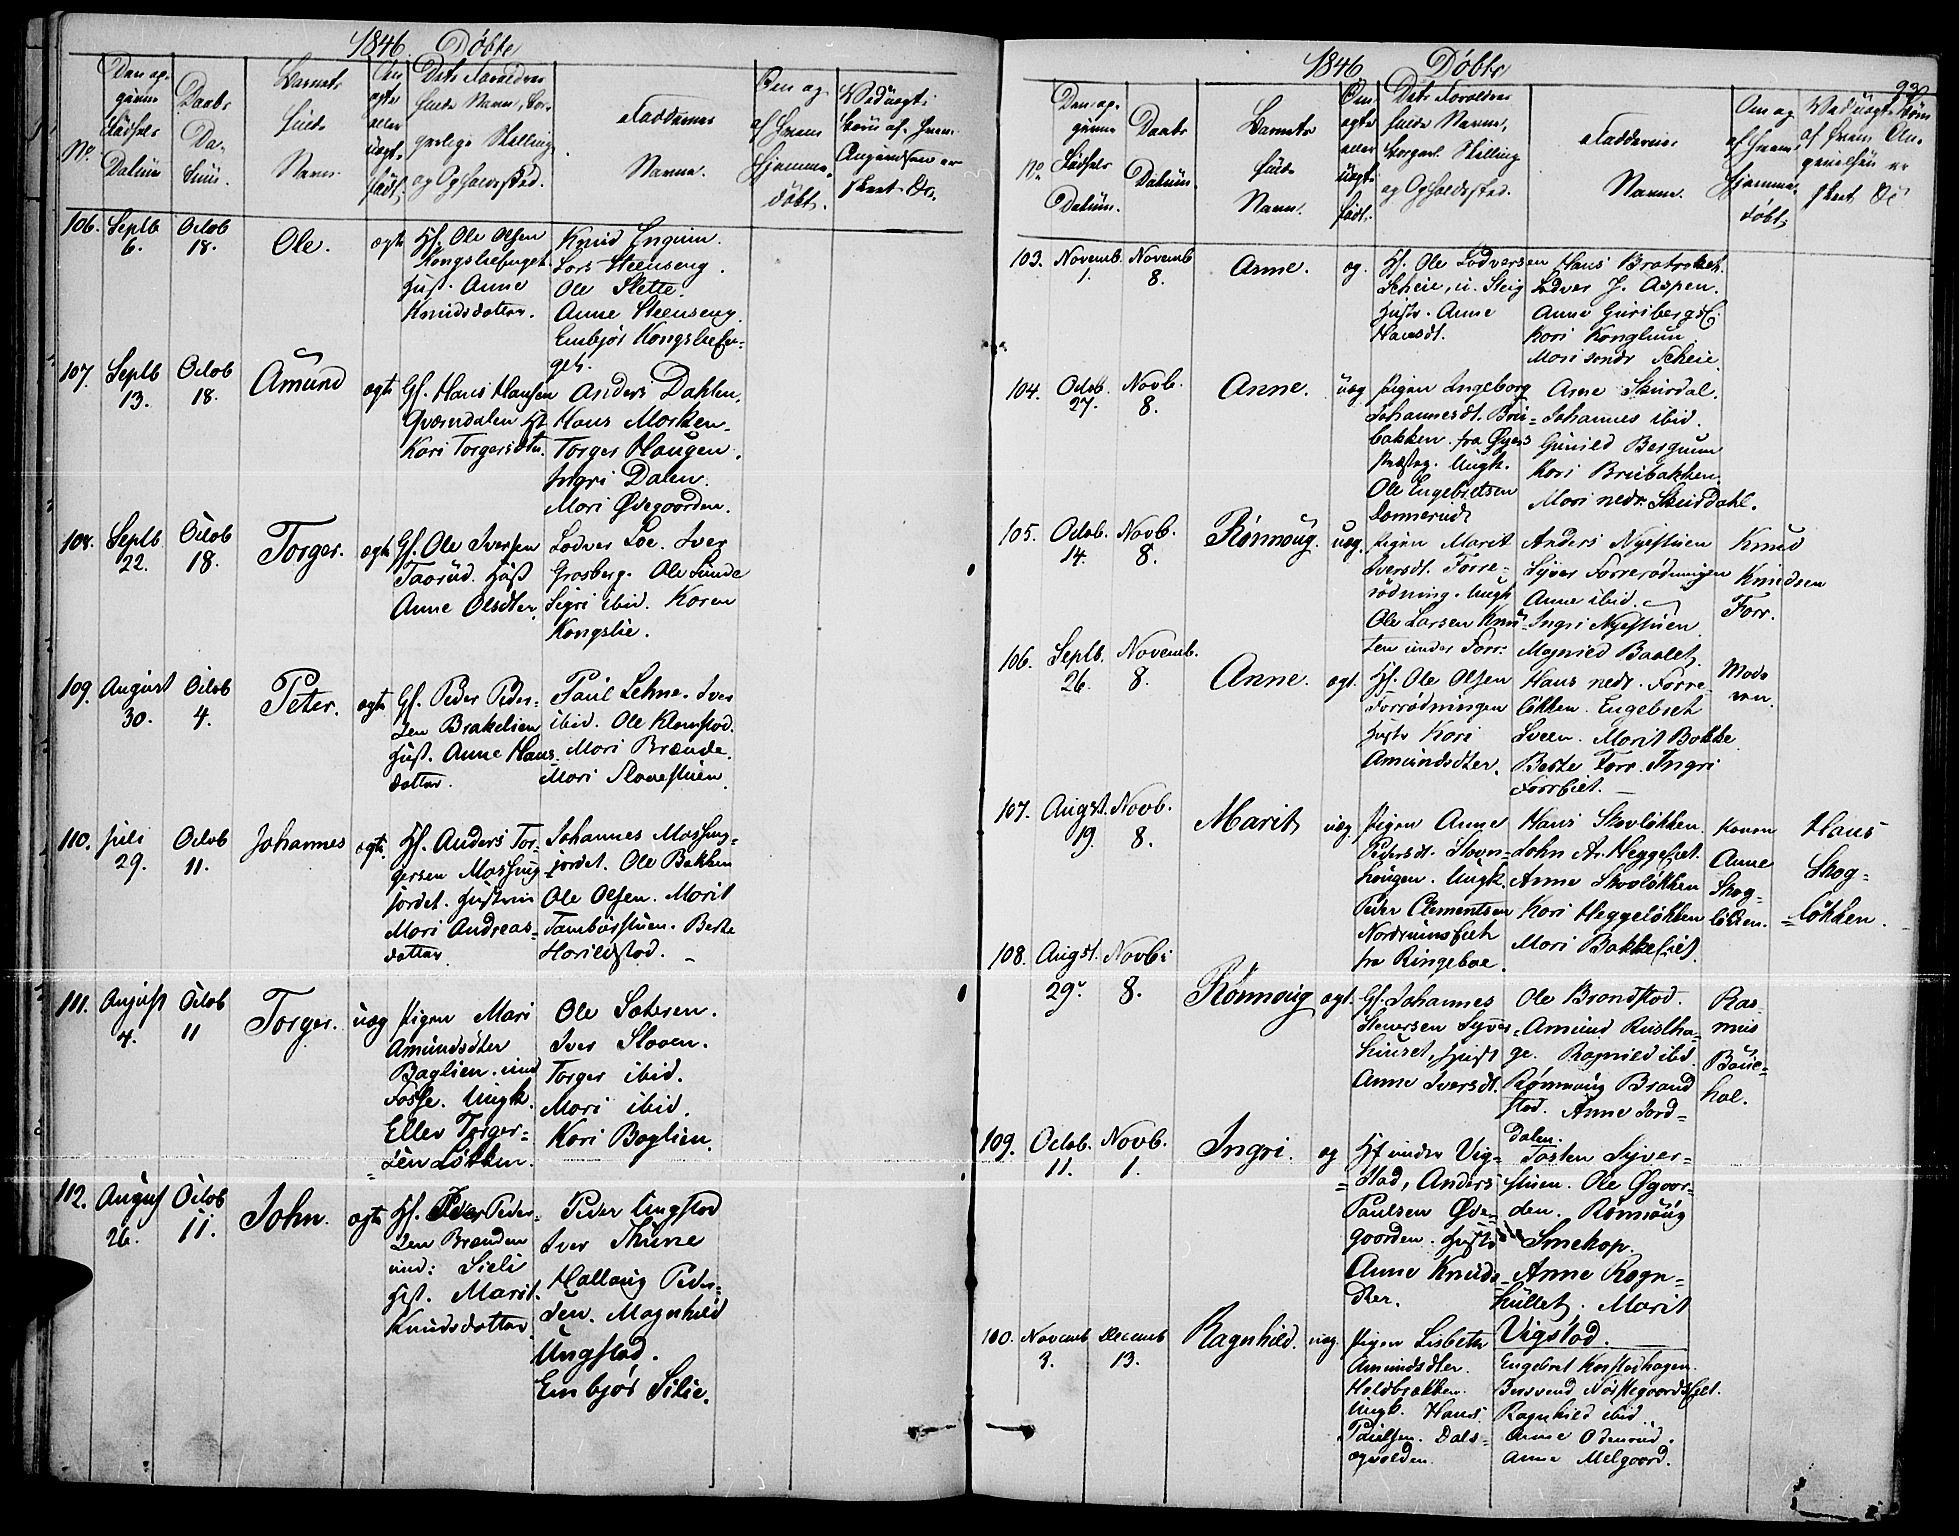 1846. Döbte
No.
Den og-
Datum
Daabs
Da-
tum.
Barnets
fulde
Navn.
ægte
eller
uægte
født.
fulde Navn, Bor-
gerlige Stilling
og Opholdssted.
Faddernes
Navne.
af hvem
Hjemme-
døbt.
106. Septb 6. Octob 18. Ole. ægte
Gf. Ole Olsen
Kongsliefuget
Hust. Anne
Knudsdatter.
Knud Ingum.
Lars Steenseng.
Ole Slette.
Anne Steenseng.
Embjør Kongsliefu-
get.
107. Septb 13. Octob 18. Amund ægte
Gf. Hans Hansen
Qværndalen H
Kari Torgersdtr.
Anders Dahlen.
Hans Morken.
Torger Haugen.
Ingri Dalen.
Mari Øvegaarden.
108. Septb 22. Octob 18. Torger. ægte
Gf. Ole Iversen
Taarud. Hust
Anne Olsdter.
Lodver Loe. Iver
Grosberg. Ole Lunde
Sigri ibid. Karen
Kongslie.
109. August 30. Octob 4. Peter. ægte
Gf. Peder Peder-
sen Brakelien
Hust. Anne Hans-
datter.
Paul Lehne. Iver
ibid. Ole Klomstad.
Mari Brænde.
Mari Slovestuen.
110. Juli 29. Octob 11. Johannes ægte.
Hf. Anders Tor-
gersen Mossing-
jordet. Hustruen
Mari Andreas-
datter
Johannes Mossing-
jordet. Ole Bakken
Ole Olsen. Marit
Tamburstuen. Berte
Harildstad. -
111. August 4. Octob 11 Torger. uæg
Pigen Mari
Amundsdter
Baglien. und
Fosse. Ungk.
Ellev Torger-
sen Løkken.
Ole Sateren.
Iver Sloven.
Torger ibid.
Mari ibid.
Kari Baglien.
112. August 26. Octob 11. John. ægte
Hf. Iver Peder-
sen Brænden
und: Sielie
Hst. Marit
Knudsdatter
Peder Ungstad
Iver Thune
Hallang Peder-
sen. Magnhild
Ungstad.
Embjør Silie.
1846. Döbte
No.
Den og-
Fødsels
Datum.
Daabs
Datum.
Barnets
fulde
Navn.
ægte
eller
uægte
født.
fulde Navn,
Borgerl. Stilling
og Opholdssted.
Faddernes
Navne.
Om og
af hvem
Hjemme-
døbt.
103. Novemb. 1. Novemb 8. Anne. æg.
Gf. Ole Lodversen
Scheie, u. Steig
Hustr. Anne
Hansdt.
Hans Bratroket.
Lodver J. Aspen.
Anne Guribergsl.
Kari Konglum.
Mari søndr Scheie.
104. Octob. 27. Novb. 8. Anne. uæg
Pigen Ingeborg
Johannesdt. Brei-
bakken fra Øyers
Præsteg. Ungk.
Ole Engebretsen
Dannerud
Arne Skurdal.
Johannes ibid.
Gunild Bergum
Kari Breibakken
Mari nedr. Skurdahl.
105. Octob. 14. Novb. 8. Rønnoug. uæg.
Pigen Marit
Iversdt. Forre-
rødning. Ungk
Ole Larsen Knu-
ten under Forr:
Anders Nyestuen
Syver Forrerødningen
Anne ibid.
Ingri Nyestuen
Magnild Baalet
Knud
Knudsen
Forr.
106. Septb. 26. Novemb. 8. Anne. ægt.
Hf. Ole Olsen
Forrødningen
Hustr Kari
Amundsdter.
Hans nedr. Forre-
løkken. Engebret
Sveen. Marit Bakke
Berte Forr. Ingri
Moderen.
107. Augst. 19. Novb. 8. Marit uæg.
Pigen Anne
Pedersdt. Stovn-
haugen. Ungk.
Peder Clementsen
fra Ringeboe.
Hans Skovløkken
John Ar. Heggeliet.
Anne Skovløkken
Kari Heggeløkken
Mari Bakkeliet.
Konen
Anne
Skog-
løkken.
Hans
Skog-
løkken.
108. Augst. 29. Novb: 8. Rønnoug ægt.
Gf. Johannes
Anne Iversdt.
Ole Brandstad.
Amund Rustha-
ge. Ragnild ibid
Rønnoug Brand
stad. Anne Jord-
dalen.
Ras-
mus
109. Octob. 11. Novb. 1. Ingri. æg
Hf under Vig-
stad, Anders
Paulsen Øve-
gaarden. Hustr
Anne Knuds-
dter.
Tosten Syver-
stuen. Ole Øgaar-
den. Rønnoug
Smekop.
Anne Rogn-
hullet. Marit
Vigstad.
110. Novemb 3. Decemb 13. Ragnhild. uæg.
Pigen Lisbeth
Amundsdter.
Holdbrækken.
Ungk. Hans
Paulsen. Dals-
ægvolden.
Engebret Korstadhagen.
Bersvend Nørstegaardsliet.
Ragnhild ibid.
Anne Odenrud.
Anne Melgaard.